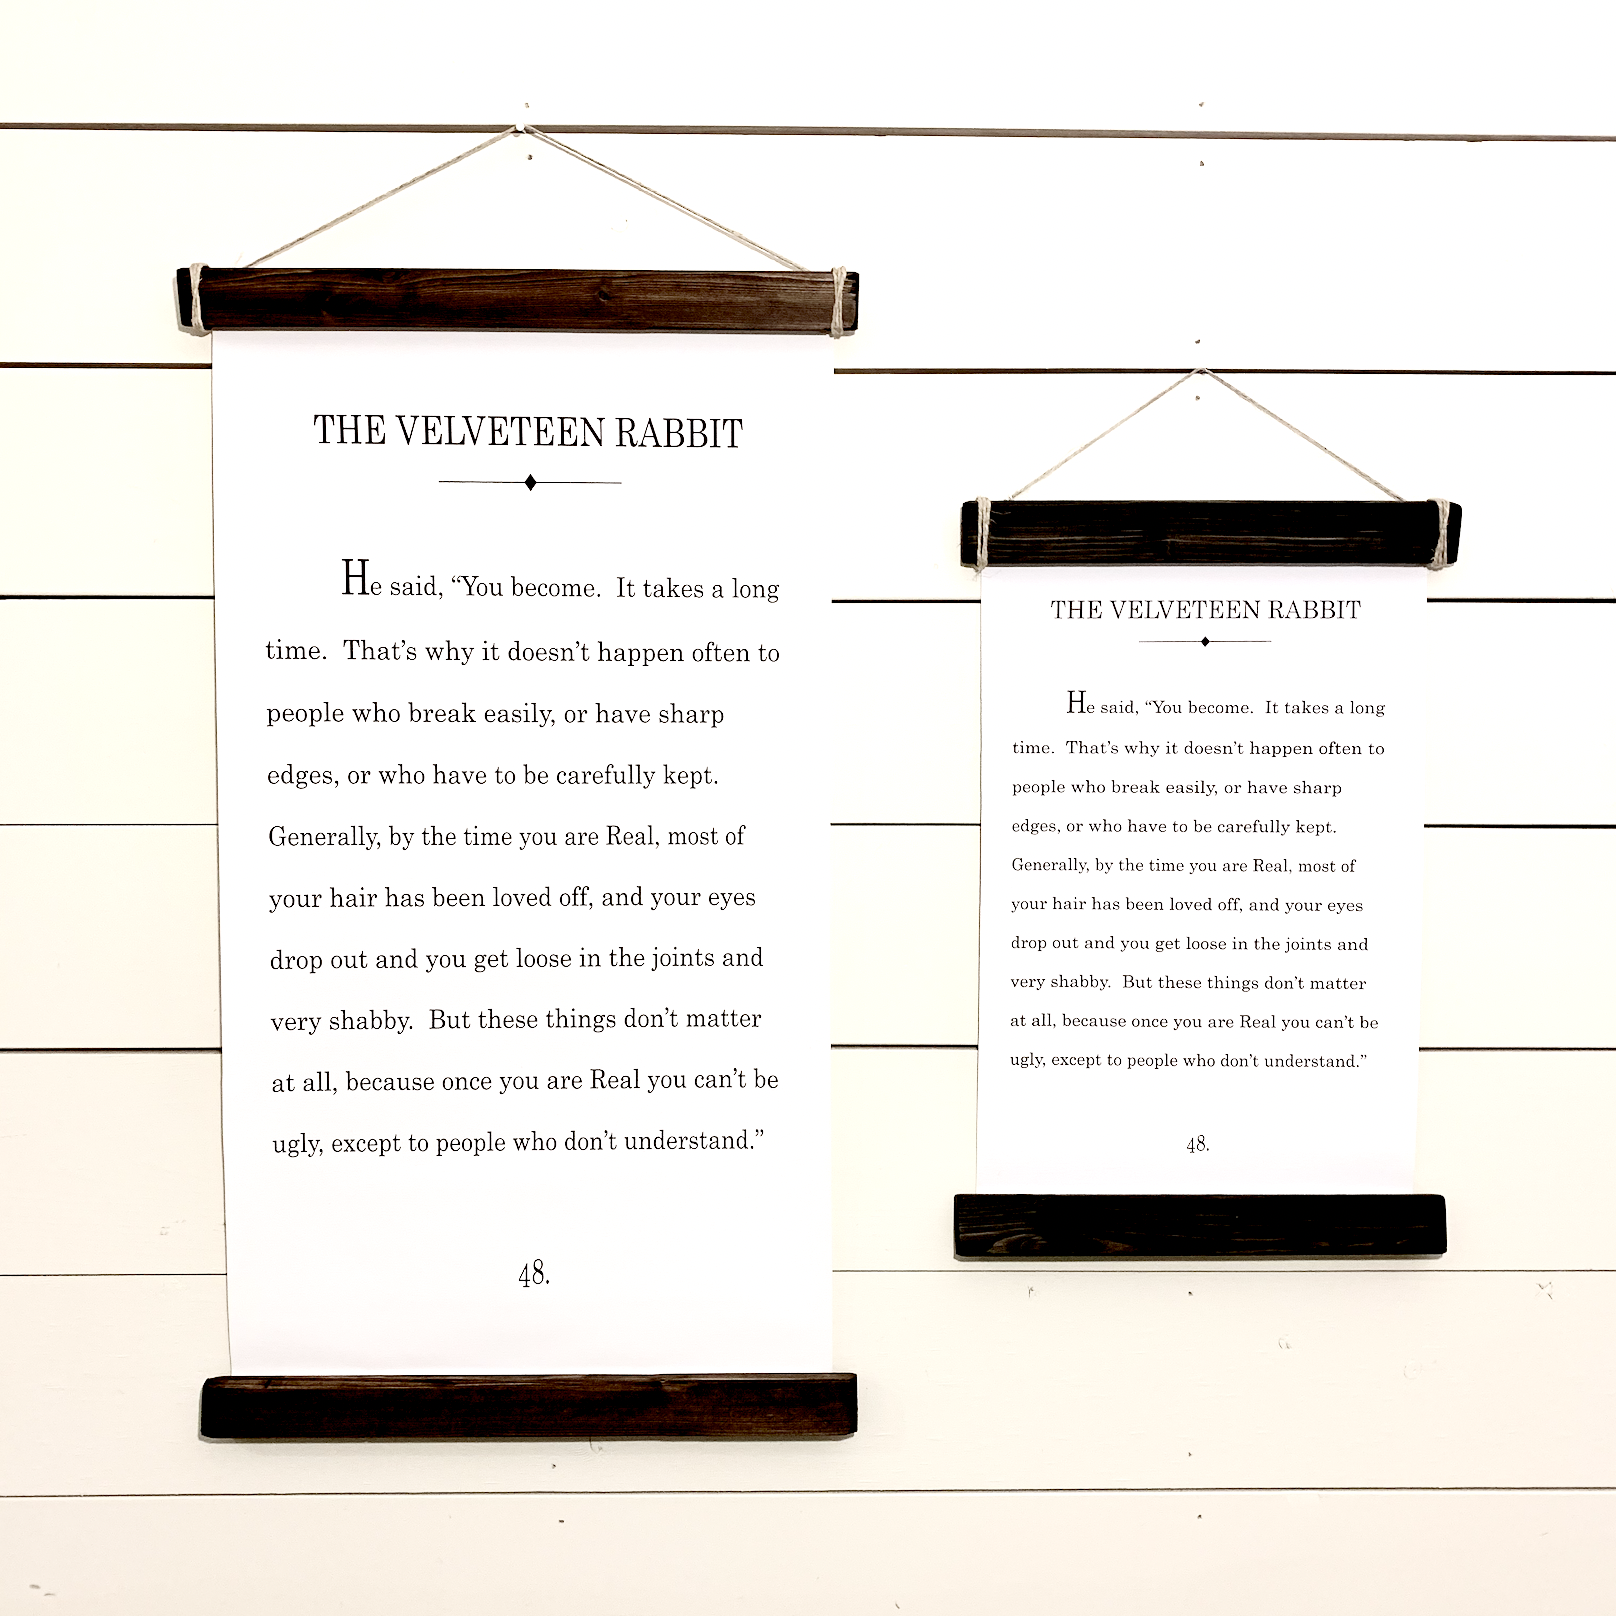 THE VELVETEEN RABBIT
He said, “You become.  It takes a long
time.  That’s why it doesn’t happen often to
people who break easily, or have sharp
edges, or who have to be carefully kept.
Generally, by the time you are Real, most of
your hair has been loved off, and your eyes
drop out and you get loose in the joints and
very shabby.  But these things don’t matter
at all, because once you are Real you can’t be
ugly, except to people who don’t understand.”
48.
THE VELVETEEN RABBIT
He said, “You become.  It takes a long
time.  That’s why it doesn’t happen often to
people who break easily, or have sharp
edges, or who have to be carefully kept.
Generally, by the time you are Real, most of
your hair has been loved off, and your eyes
drop out and you get loose in the joints and
very shabby.  But these things don’t matter
at all, because once you are Real you can’t be
ugly, except to people who don’t understand.”
48.